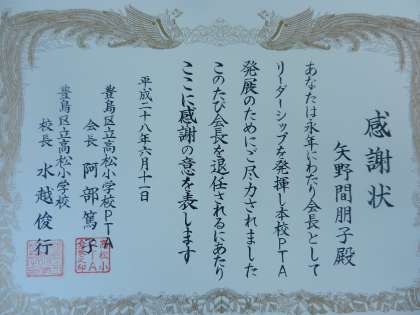 感謝状
矢野間朋子殿
あなたは永年にわたり会長として
リーダーシップを発揮し本校PTA
発展のためにご尽力されました
このたび会長を退任されるにあたり
ここに感謝の意を表します
平成二十八年六月十一日
豊島区立高松小学校PTA
会長 阿部篤子
豊島区立高松小学校
校長 水越俊行